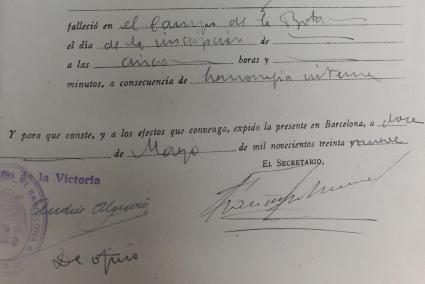 falleció en el Campo de la Bota
el día de la inscripción de
a las cinco horas y
minutos, a consecuencia de hemorragia interna
Y para que conste, y a los efectos que convenga, expido la presente en Barcelona, a doce
de Mayo de mil novecientos treinta y nueve
EL SECRETARIO,
de la Victoria
De oficio